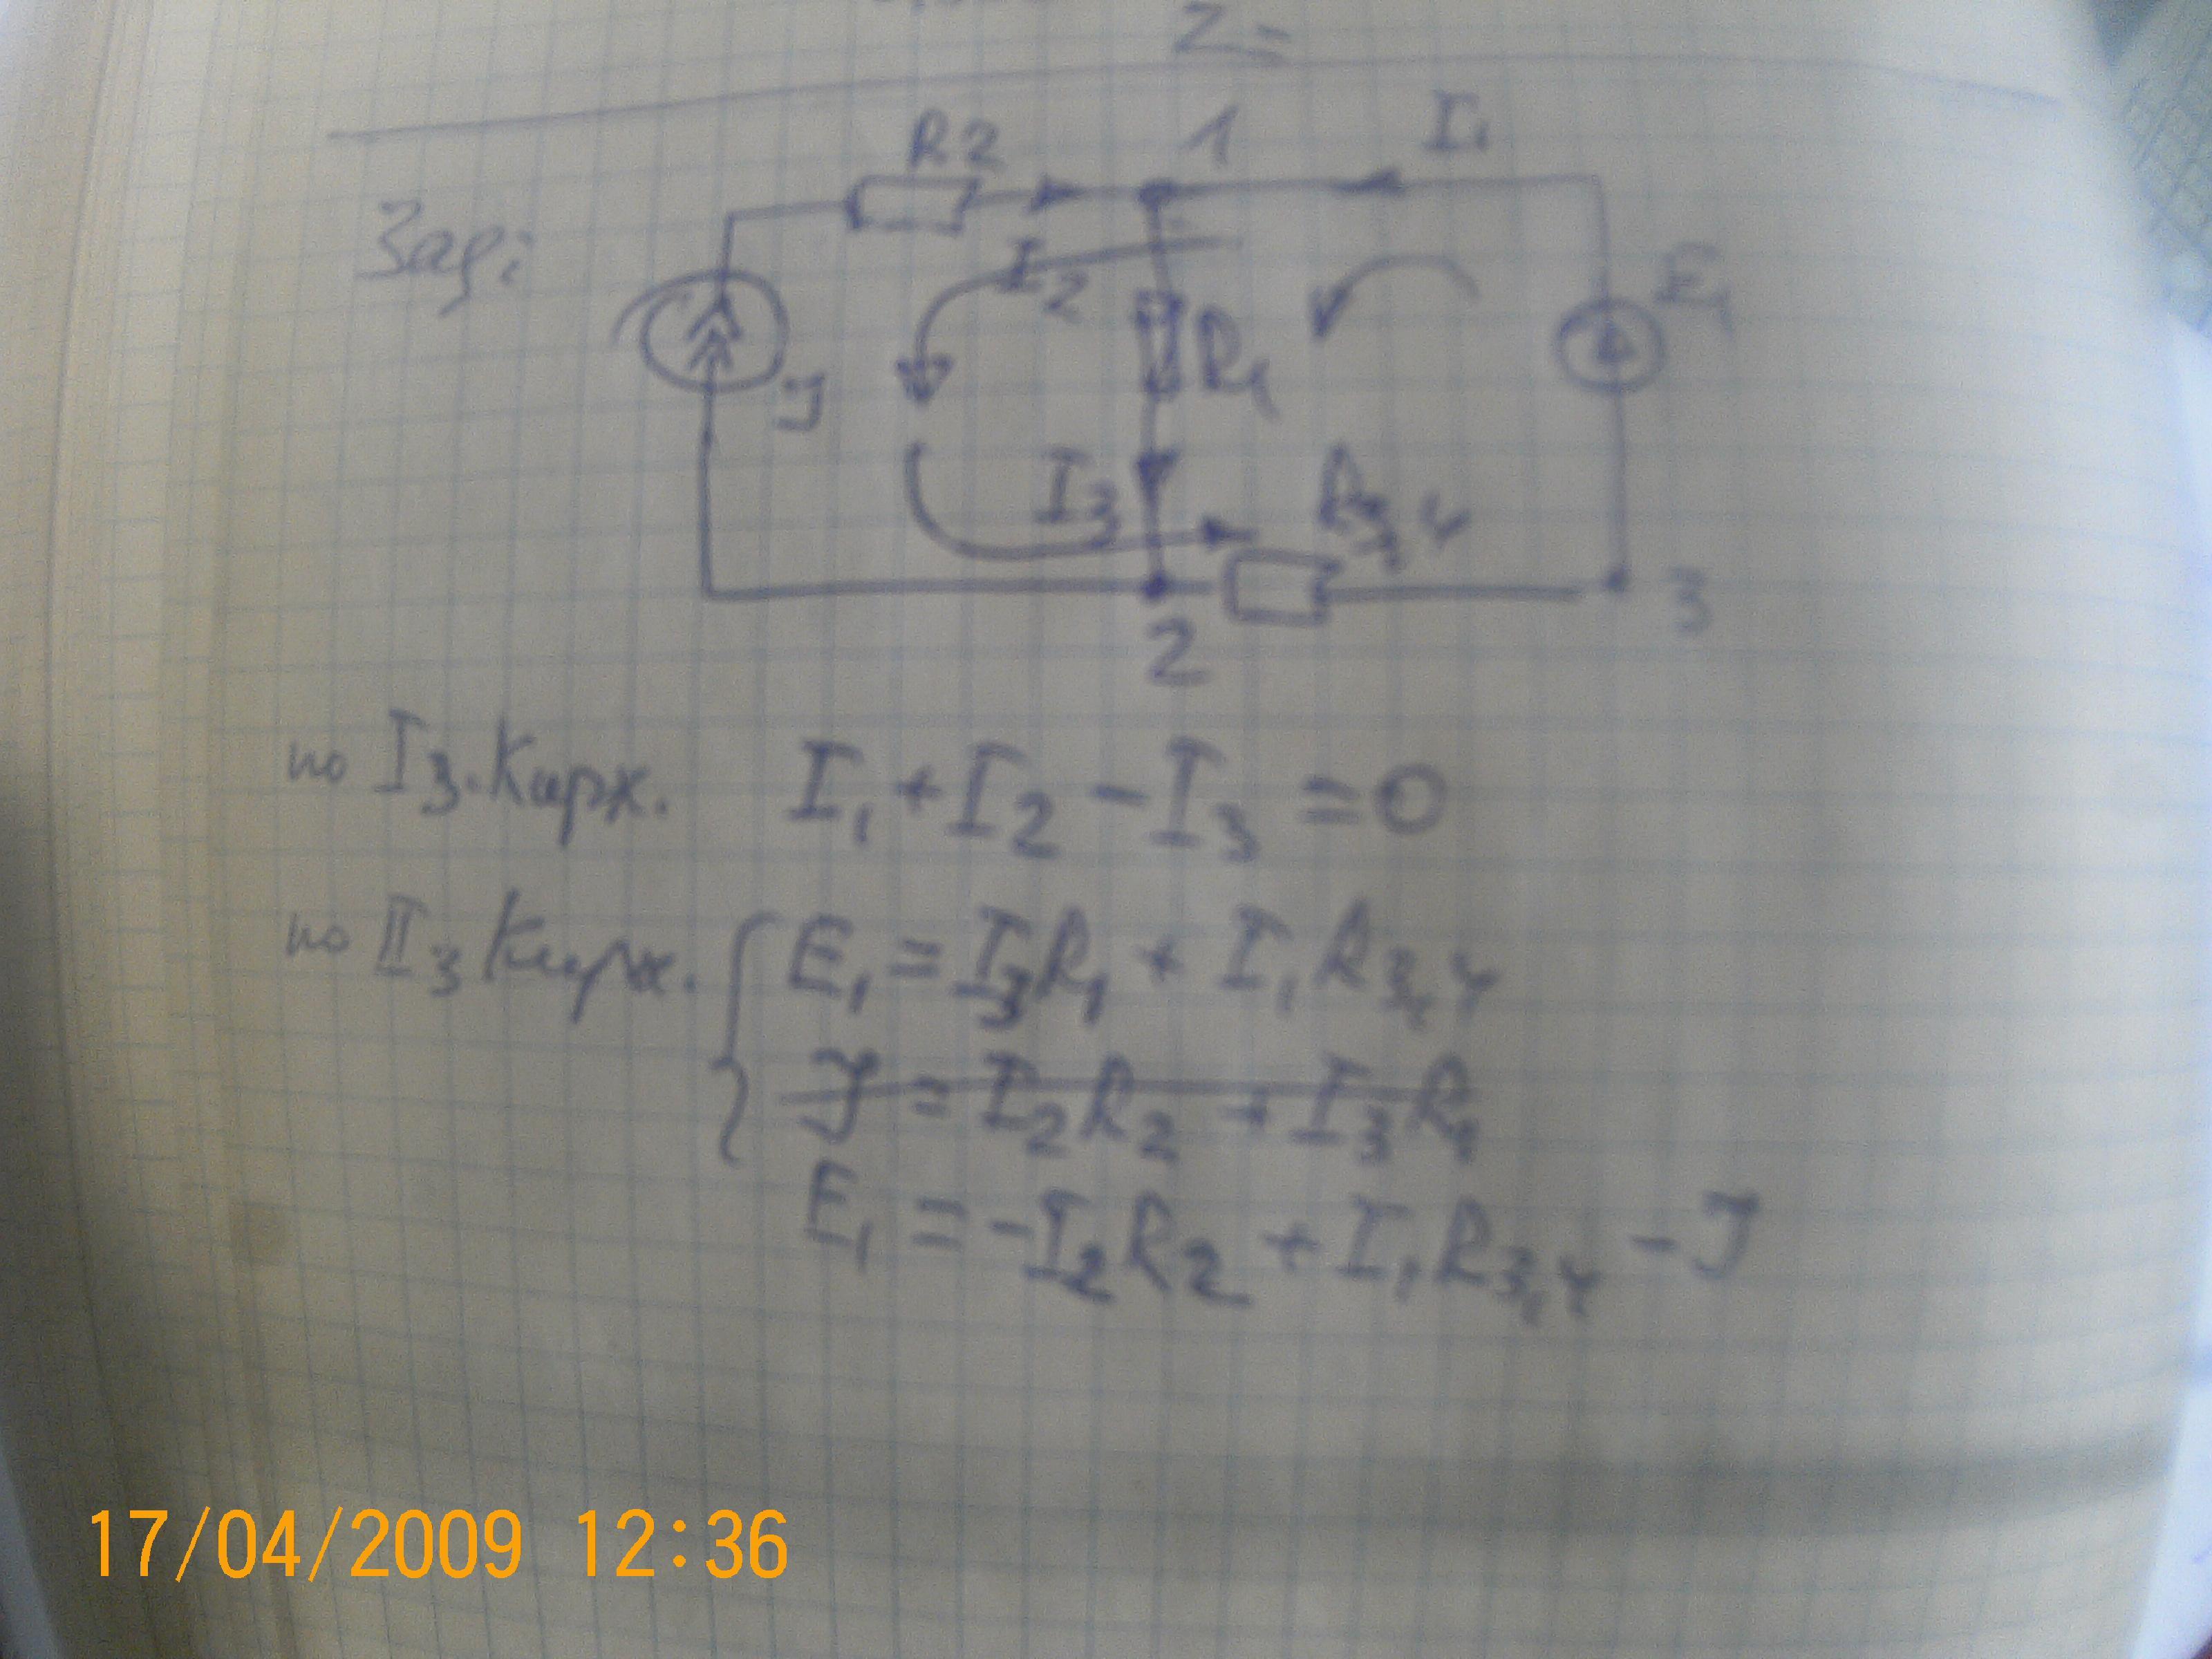 Z =
R2 1 I₁
Зад:
I₂ E₁
J R₁
I₃ R₃,₄
2 3
по I з. Кирх. I₁ + I₂ - I₃ = 0
по II з Кирх. E₁ = I₃R₁ + I₁R₃,₄
J = I₂R₂ + I₃R₁
E₁ = -I₂R₂ + I₁R₃,₄ - J
17/04/2009 12:36